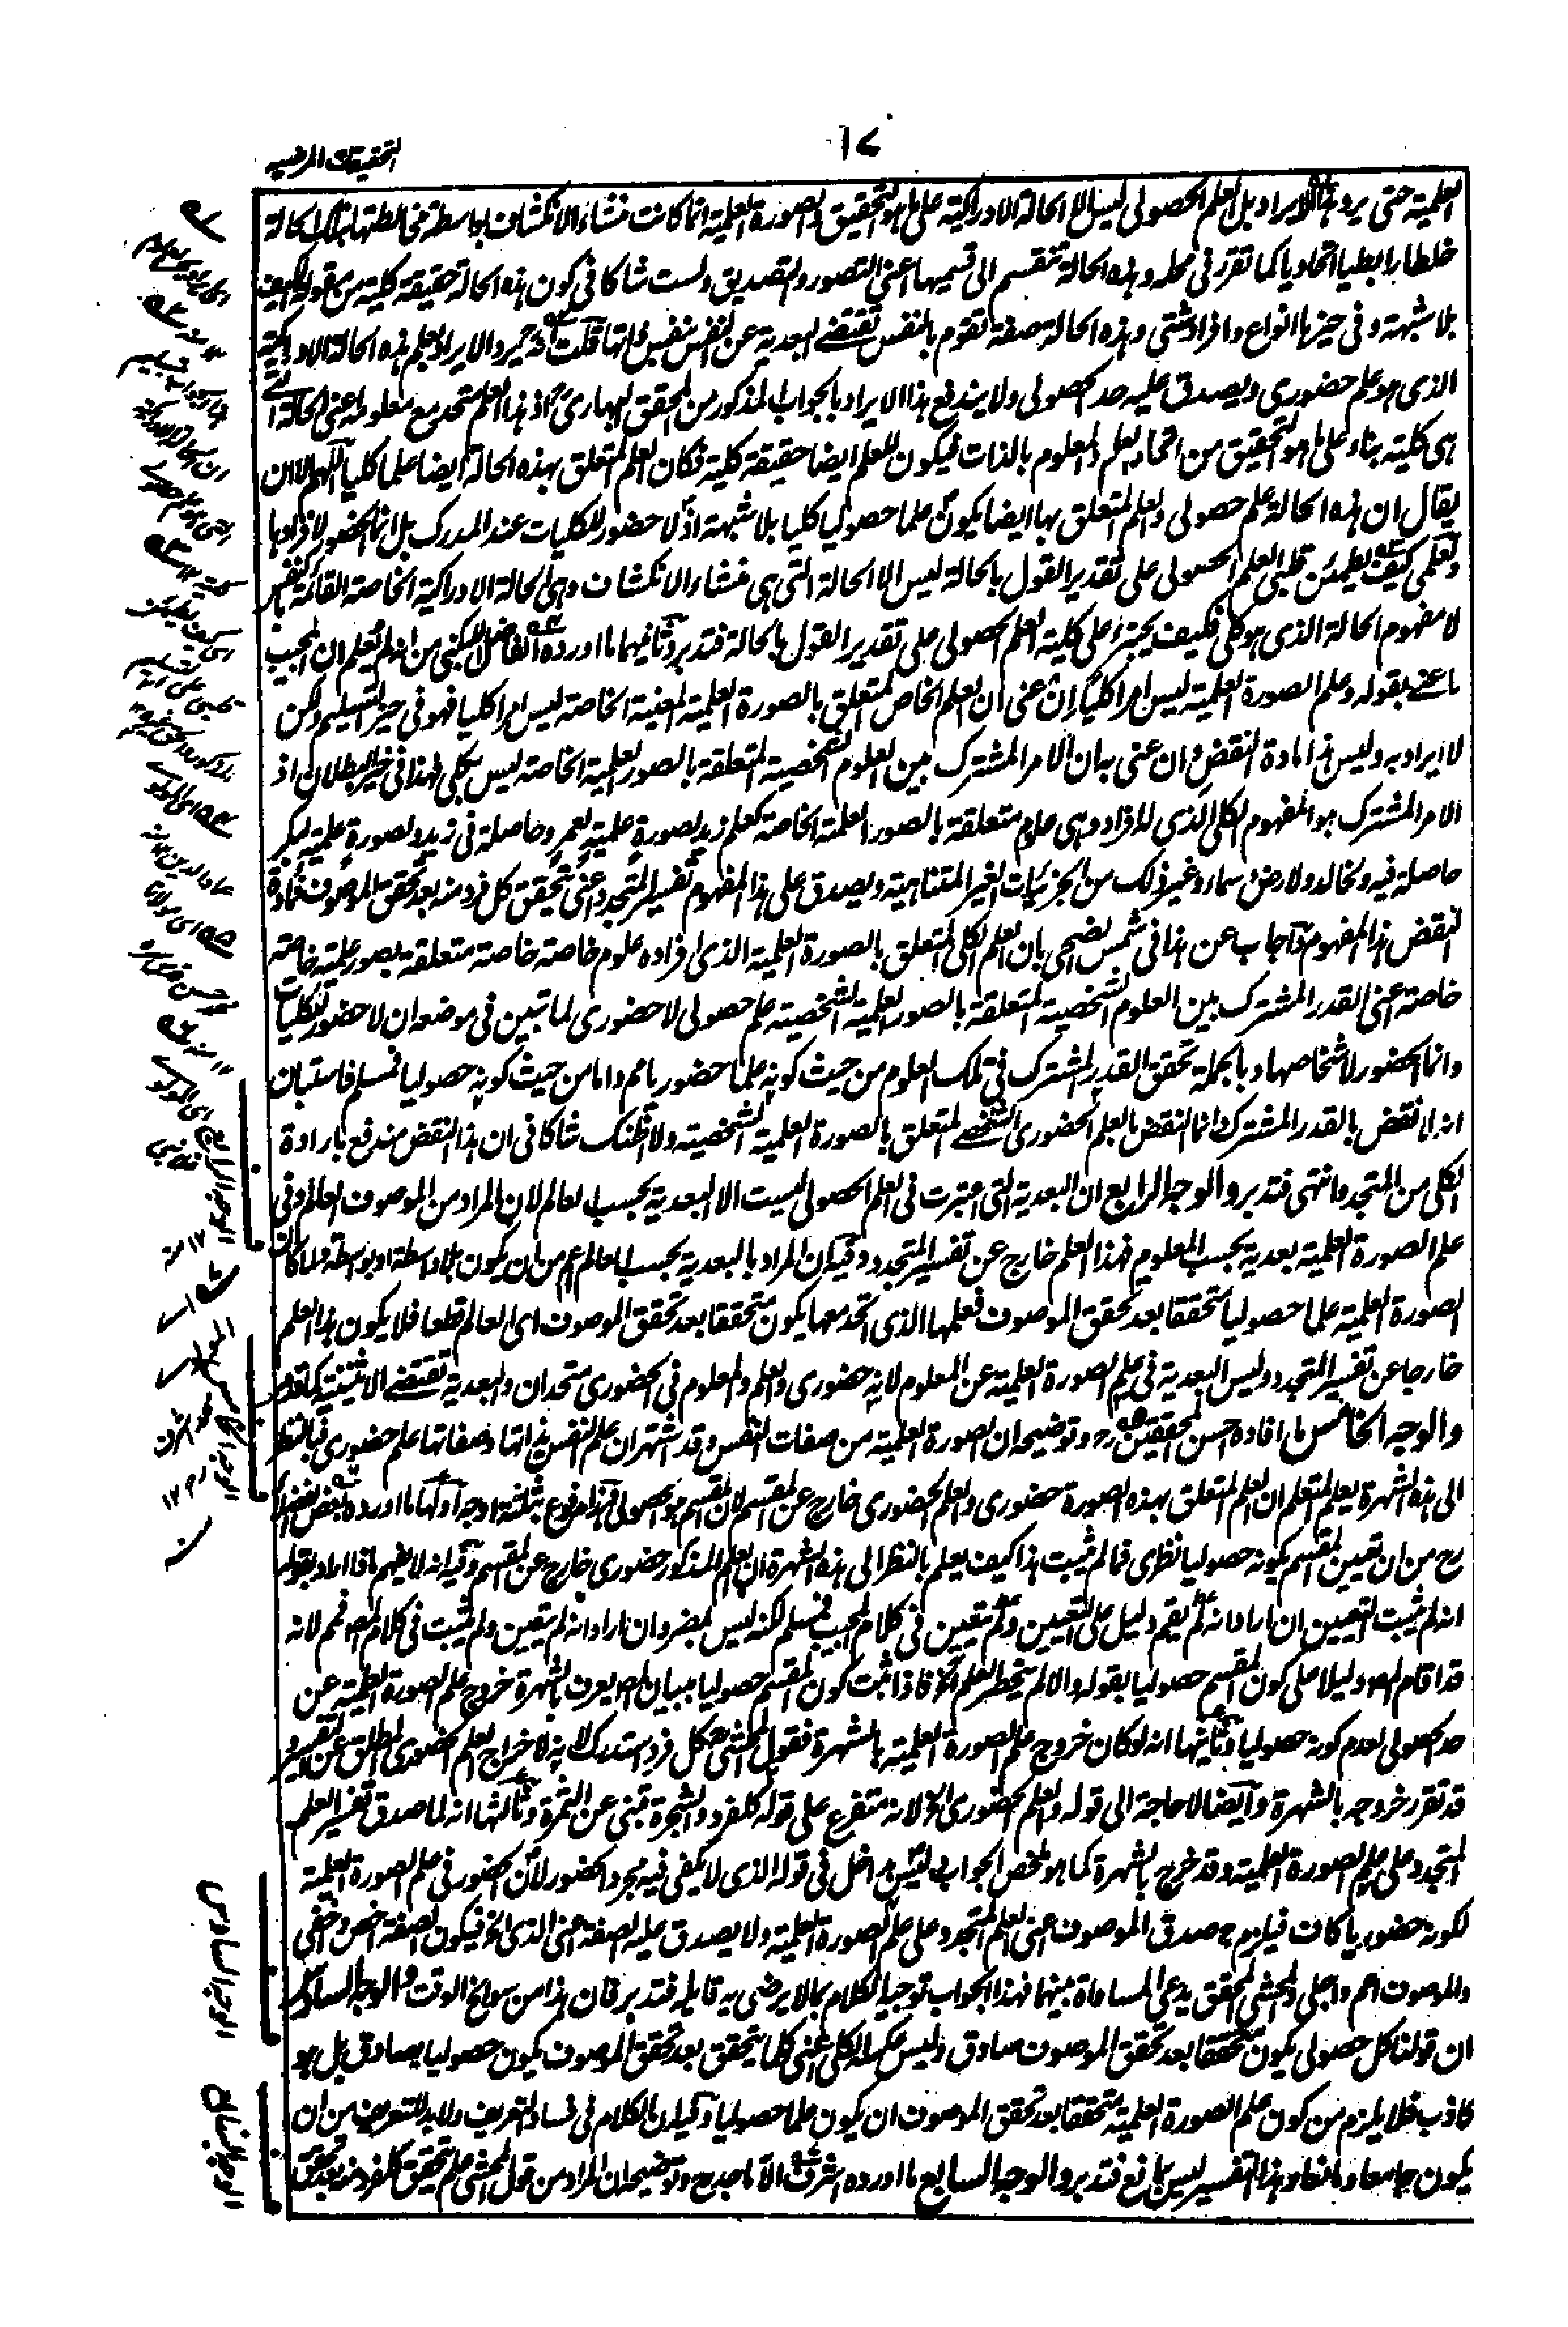 ١٧
التحقيقات المرضيه
العلمية حتى يرد هذا الايراد بل العلم الحصولى ليس الا الحالة الادراكية على ما هو التحقيق والصورة العلمية انما كانت منشاء الانكشاف بواسطة مخالطتها بتلك الحالة
خلطا رابطيا اتحاديا كما تقرر فى محله وهذه الحالة تنقسم الى قسميها اعنى التصور والتصديق ولست شاكا فى كون هذه الحالة حقيقة كلية من مقولة الكيف
بلا شبهة وفى حيزها انواع وافراد شتى وهذه الحالة صفة تقوم بالنفس تقتضى البعدية عن النفس بنفس ذاتها قلت الايراد بعلم هذه الحالة الادراكية
الذى هو علم حضورى ويصدق عليه حد الحصولى ولا يندفع هذا الايراد بالجواب المذكور من المحقق البهارى اذ هذا العلم متحد مع معلومه اعنى الحالة التى
هى كلية بناء على ما هو التحقيق من اتحاد العلم والمعلوم بالذات فيكون العلم ايضا حقيقة كلية فكان العلم المتعلق بهذه الحالة ايضا علما كليا اللهم الا ان
يقال ان هذه الحالة علم حصولى والعلم المتعلق بها ايضا يكون علما حصوليا كليا بلا شبهة اذ لا حضور للكليات عند المدرك بل انما الحضور لافرادها
ولعلمى كيف يطمئن قلبى العلم الحصولى على تقدير القول بالحالة ليس الا الحالة التى هى منشاء الانكشاف وهى الحالة الادراكية الخاصة القائمة بالنفس
لا مفهوم الحالة الذى هو كلى فكيف يجترء على كلية العلم الحصولى على تقدير القول بالحالة فتدبر وثانيهما ما اورده الفاضل اللبكنى من انه لم يعلم ان المجيب
ما عنى بقوله وعلم الصورة العلمية ليس امرا كليا ان عنى ان العلم الخاص المتعلق بالصورة العلمية المعينة الخاصة ليس امرا كليا فهو فى حيز التسليم ولكن
لا ايراد به وليس هذا مادة النقض وان عنى به ان الامر المشترك بين العلوم الشخصية المتعلقة بالصور العلمية الخاصة ليس بكلى فهذا فى حيز البطلان اذ
الامر المشترك هو المفهوم الكلى الذى للافراد وهى علوم متعلقة بالصور العلمية الخاصة كعلم زيد بصورة علمية لعمرو حاصلة فى زيد وبصورة علمية لبكر
حاصلة فيه ولخالد ولارض وسماء وغير ذلك من الجزئيات الغير المتناهية ويصدق على هذا المفهوم تفسير المتجدد اعنى تحقق كل فرد منه بعد تحقق الموصوف فمادة
النقض هذا المفهوم واجاب عن هذا فى شمس الضحى بان العلم الكلى المتعلق بالصورة العلمية الذى افراده علوم خاصة خاصة متعلقة بصور علمية خاصة
خاصة اعنى القدر المشترك بين العلوم الشخصية المتعلقة بالصور العلمية الشخصية علم حصولى لا حضورى لما تبين فى موضعه ان لا حضور للكليات
وانما الحضور لاشخاصها وبالجملة تحقق القدر المشترك فى تلك العلوم من حيث كونه علما حضوريا مم واما من حيث كونه حصوليا فمسلم فاستبان
انه لا نقض بالقدر المشترك وانما النقض بالعلم الحضورى الشخصى المتعلق بالصورة العلمية الشخصية ولا اظنك شاكا فى ان هذا النقض مندفع بارادة
الكلى من المتجدد انتهى فتدبر والوجه الرابع ان البعدية التى اعتبرت فى العلم الحصولى ليست الا البعدية بحسب العالم لان المراد من الموصوف العالم وفى
علم الصورة العلمية بعدية بحسب المعلوم فهذا العلم خارج عن تفسير المتجدد وفيه ان المراد بالبعدية بحسب العالم اعم من ان يكون بلا واسطة او بواسطة ولما كانت
الصورة العلمية علما حصوليا متحققا بعد تحقق الموصوف فعلمها الذى اتحد معها يكون متحققا بعد تحقق الموصوف اى العالم قطعا فلا يكون هذا العلم
خارجا عن تفسير المتجدد وليس البعدية فى علم الصورة العلمية عن المعلوم لانه حضورى والعلم والمعلوم فى الحضورى متحدان والبعدية تقتضى الاثنينية كما تقرر
والوجه الخامس ما افاده احسن المحققين رح وتوضيحه ان الصورة العلمية من صفات النفس وقد اشتهر ان علم النفس بذاتها وصفاتها علم حضورى فبالنظر
الى هذه الشهرة يعلم المتعلم ان العلم المتعلق بهذه الصورة حضورى والعلم الحضورى خارج عن المقسم لان المقسم هو الحصولى فهذا مدفوع بثلثة اوجه اولها ما اورده بعض الفضلاء
رح من ان تعيين المقسم بكونه حصوليا نظرى فما لم يثبت هذا كيف يعلم بالنظر الى هذه الشهرة ان العلم المذكور حضورى خارج عن المقسم وفيه انه لا يفهم ماذا اراد بقوله
انه لم يثبت التعيين ان اراد انه لم يقم دليل على التعيين ولم يتعين فى كلام المجيب فمسلم لكنه ليس بمضر وان اراد انه لم يتعين ولم يثبت فى كلام المص فمم لانه
قد اقام المص دليلا على كون المقسم حصوليا بقوله والا لم ينحصر العلم الخ فاذا ثبت كون المقسم حصوليا ببيان المص يعرف بالشهرة خروج علم الصورة العلمية عن
حد الحصولى لعدم كونه حصوليا وثانيها انه لو كان خروج علم الصورة العلمية بالشهرة فقول المحشى كل فرد استدراك لانه لاخراج العلم الحضورى المطلق عن التفسير و
قد تقرر خروجه بالشهرة وايضا لا حاجة الى قوله والعلم الحضورى الخ لانه متفرع على قوله كل فرد والشجرة تنبئ عن الثمرة وثالثها انه لما صدق تفسير العلم
المتجدد على علم الصورة العلمية وقد خرج بالشهرة كما هو ملخص الجواب وليس بداخل فى قوله الذى لا يكفى فيه مجرد الحضور لان الحضور فى علم الصورة العلمية
لكونه حضوريا كاف فيلزم ح صدق الموصوف اعنى العلم المتجدد على علم الصورة العلمية ولا يصدق عليه الصفة اعنى الذى الخ فيكون الصفة اخص واخفى
والموصوف اعم واجلى والمحشى المحقق يدعى المساواة بينهما فهذا الجواب توجيه الكلام بما لا يرضى به قايله فتدبر فان هذا من سوانح الوقت والوجه السادس
ان قولنا كل حصولى يكون متحققا بعد تحقق الموصوف صادق وليس عكسه الكلى اعنى كلما يتحقق بعد تحقق الموصوف يكون حصوليا بصادق بل هو
كاذب فلا يلزم من كون علم الصورة العلمية متحققا بعد تحقق الموصوف ان يكون علما حصوليا وفيه ان الكلام فى فساد التعريف ولا بد للتعريف من ان
يكون جامعا ومانعا وهذا التفسير ليس بمانع فتدبر والوجه السابع ما اورده اشرف الاماجد رح وتوضيحه ان المراد من قول المحشى علم تحقق كل فرد منه بعد تحقق
الوجه الرابع
الوجه الخامس
الوجه السادس
الوجه السابع